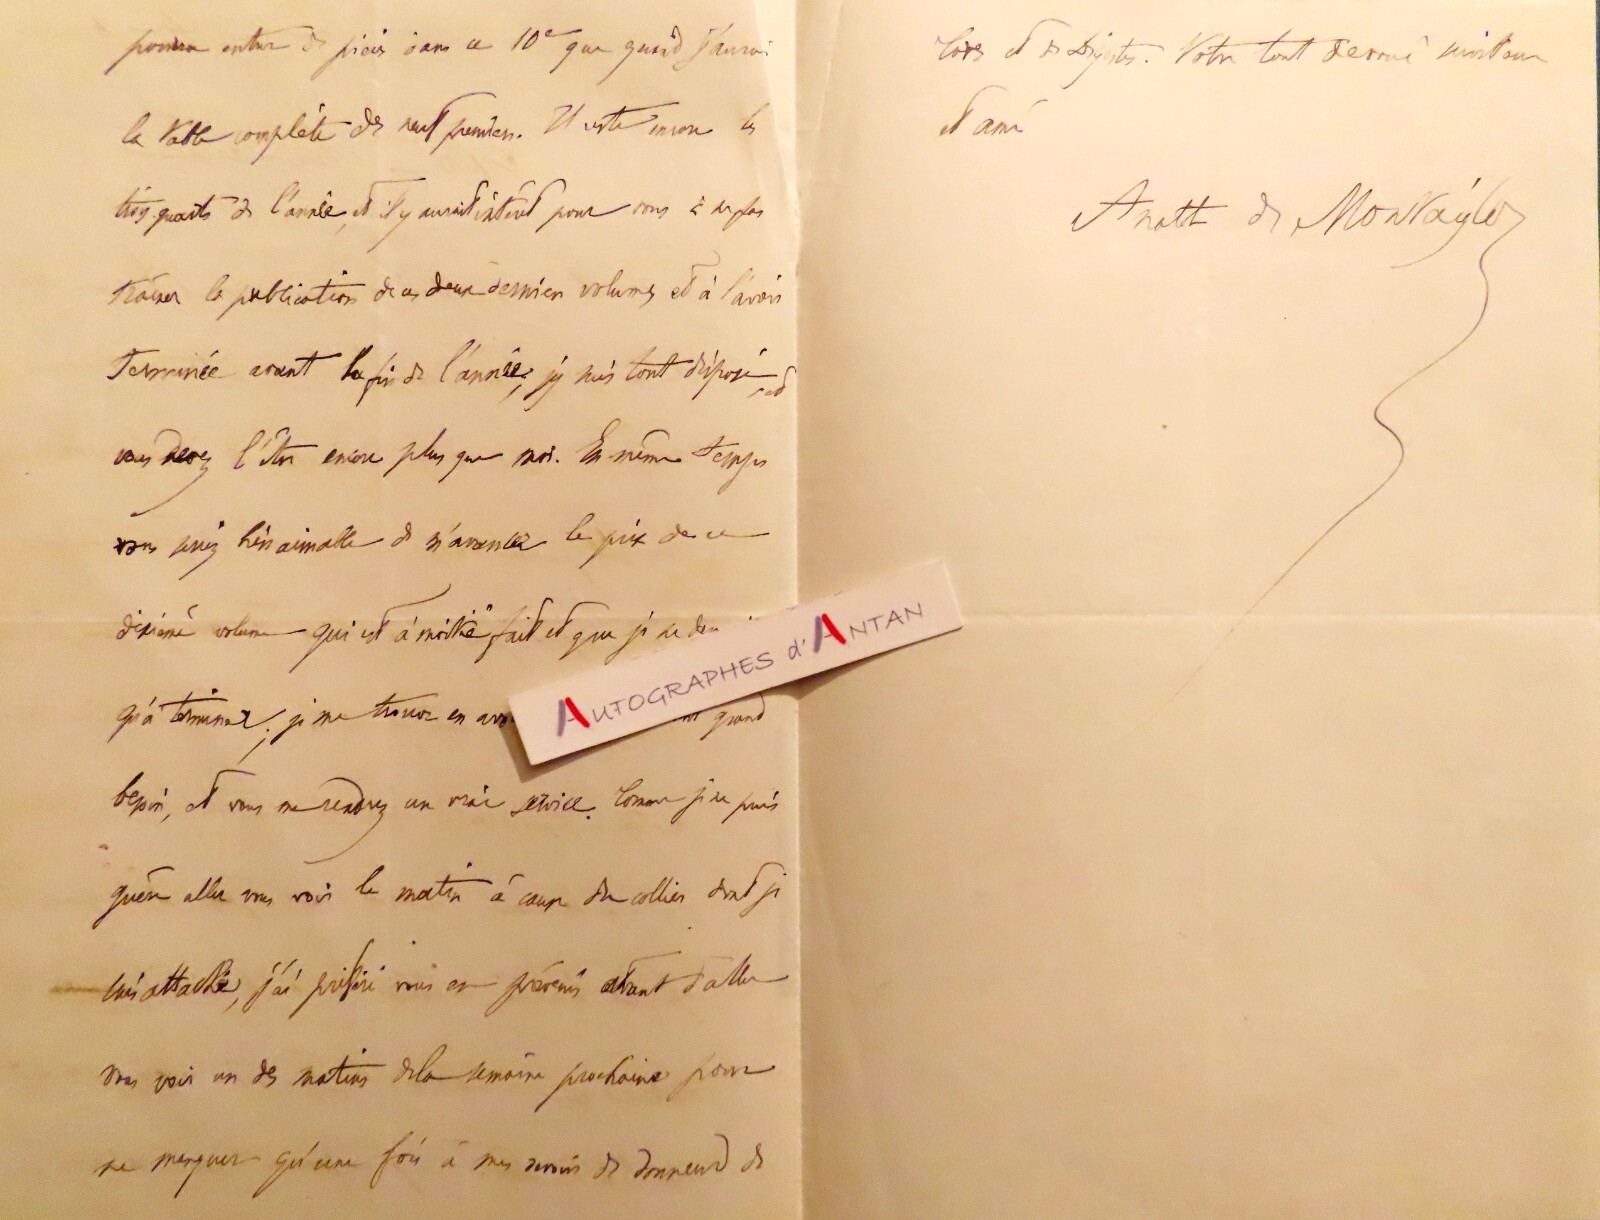 pourrai entrer de pièces dans ce 10e que quand j'aurai
la table complète des neuf premiers. Il reste encore les
trois quarts de l'année, et il y aurait intérêt pour vous à ne pas
traîner la publication de ces deux derniers volumes et à l'avoir
terminée avant la fin de l'année; j'y suis tout disposé, et
vous devez l'être encore plus que moi. En même temps
vous seriez bien aimable de m'avancer le prix de ce
dixième volume qui est à moitié fait et que je ne
qu'à terminer; je me trouve en avoir grand
besoin, et vous me rendrez un vrai service. Comme je ne puis
guère aller vous voir le matin à cause du collier dont je
suis attaché, j'ai préféré vous en prévenir avant d'aller
vous voir un des matins de la semaine prochaine pour
ne manquer qu'une fois à mes devoirs de donneur de
Codes et de Digestes. Votre tout dévoué serviteur
et ami
Anatole de Montaiglon
AUTOGRAPHES d'ANTAN